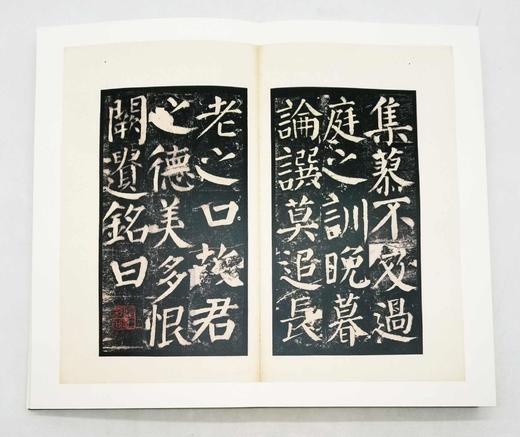 集蓼不及過
庭之訓晚暮
論譔莫追長
老之口故君
之德美多恨
闕遺銘曰